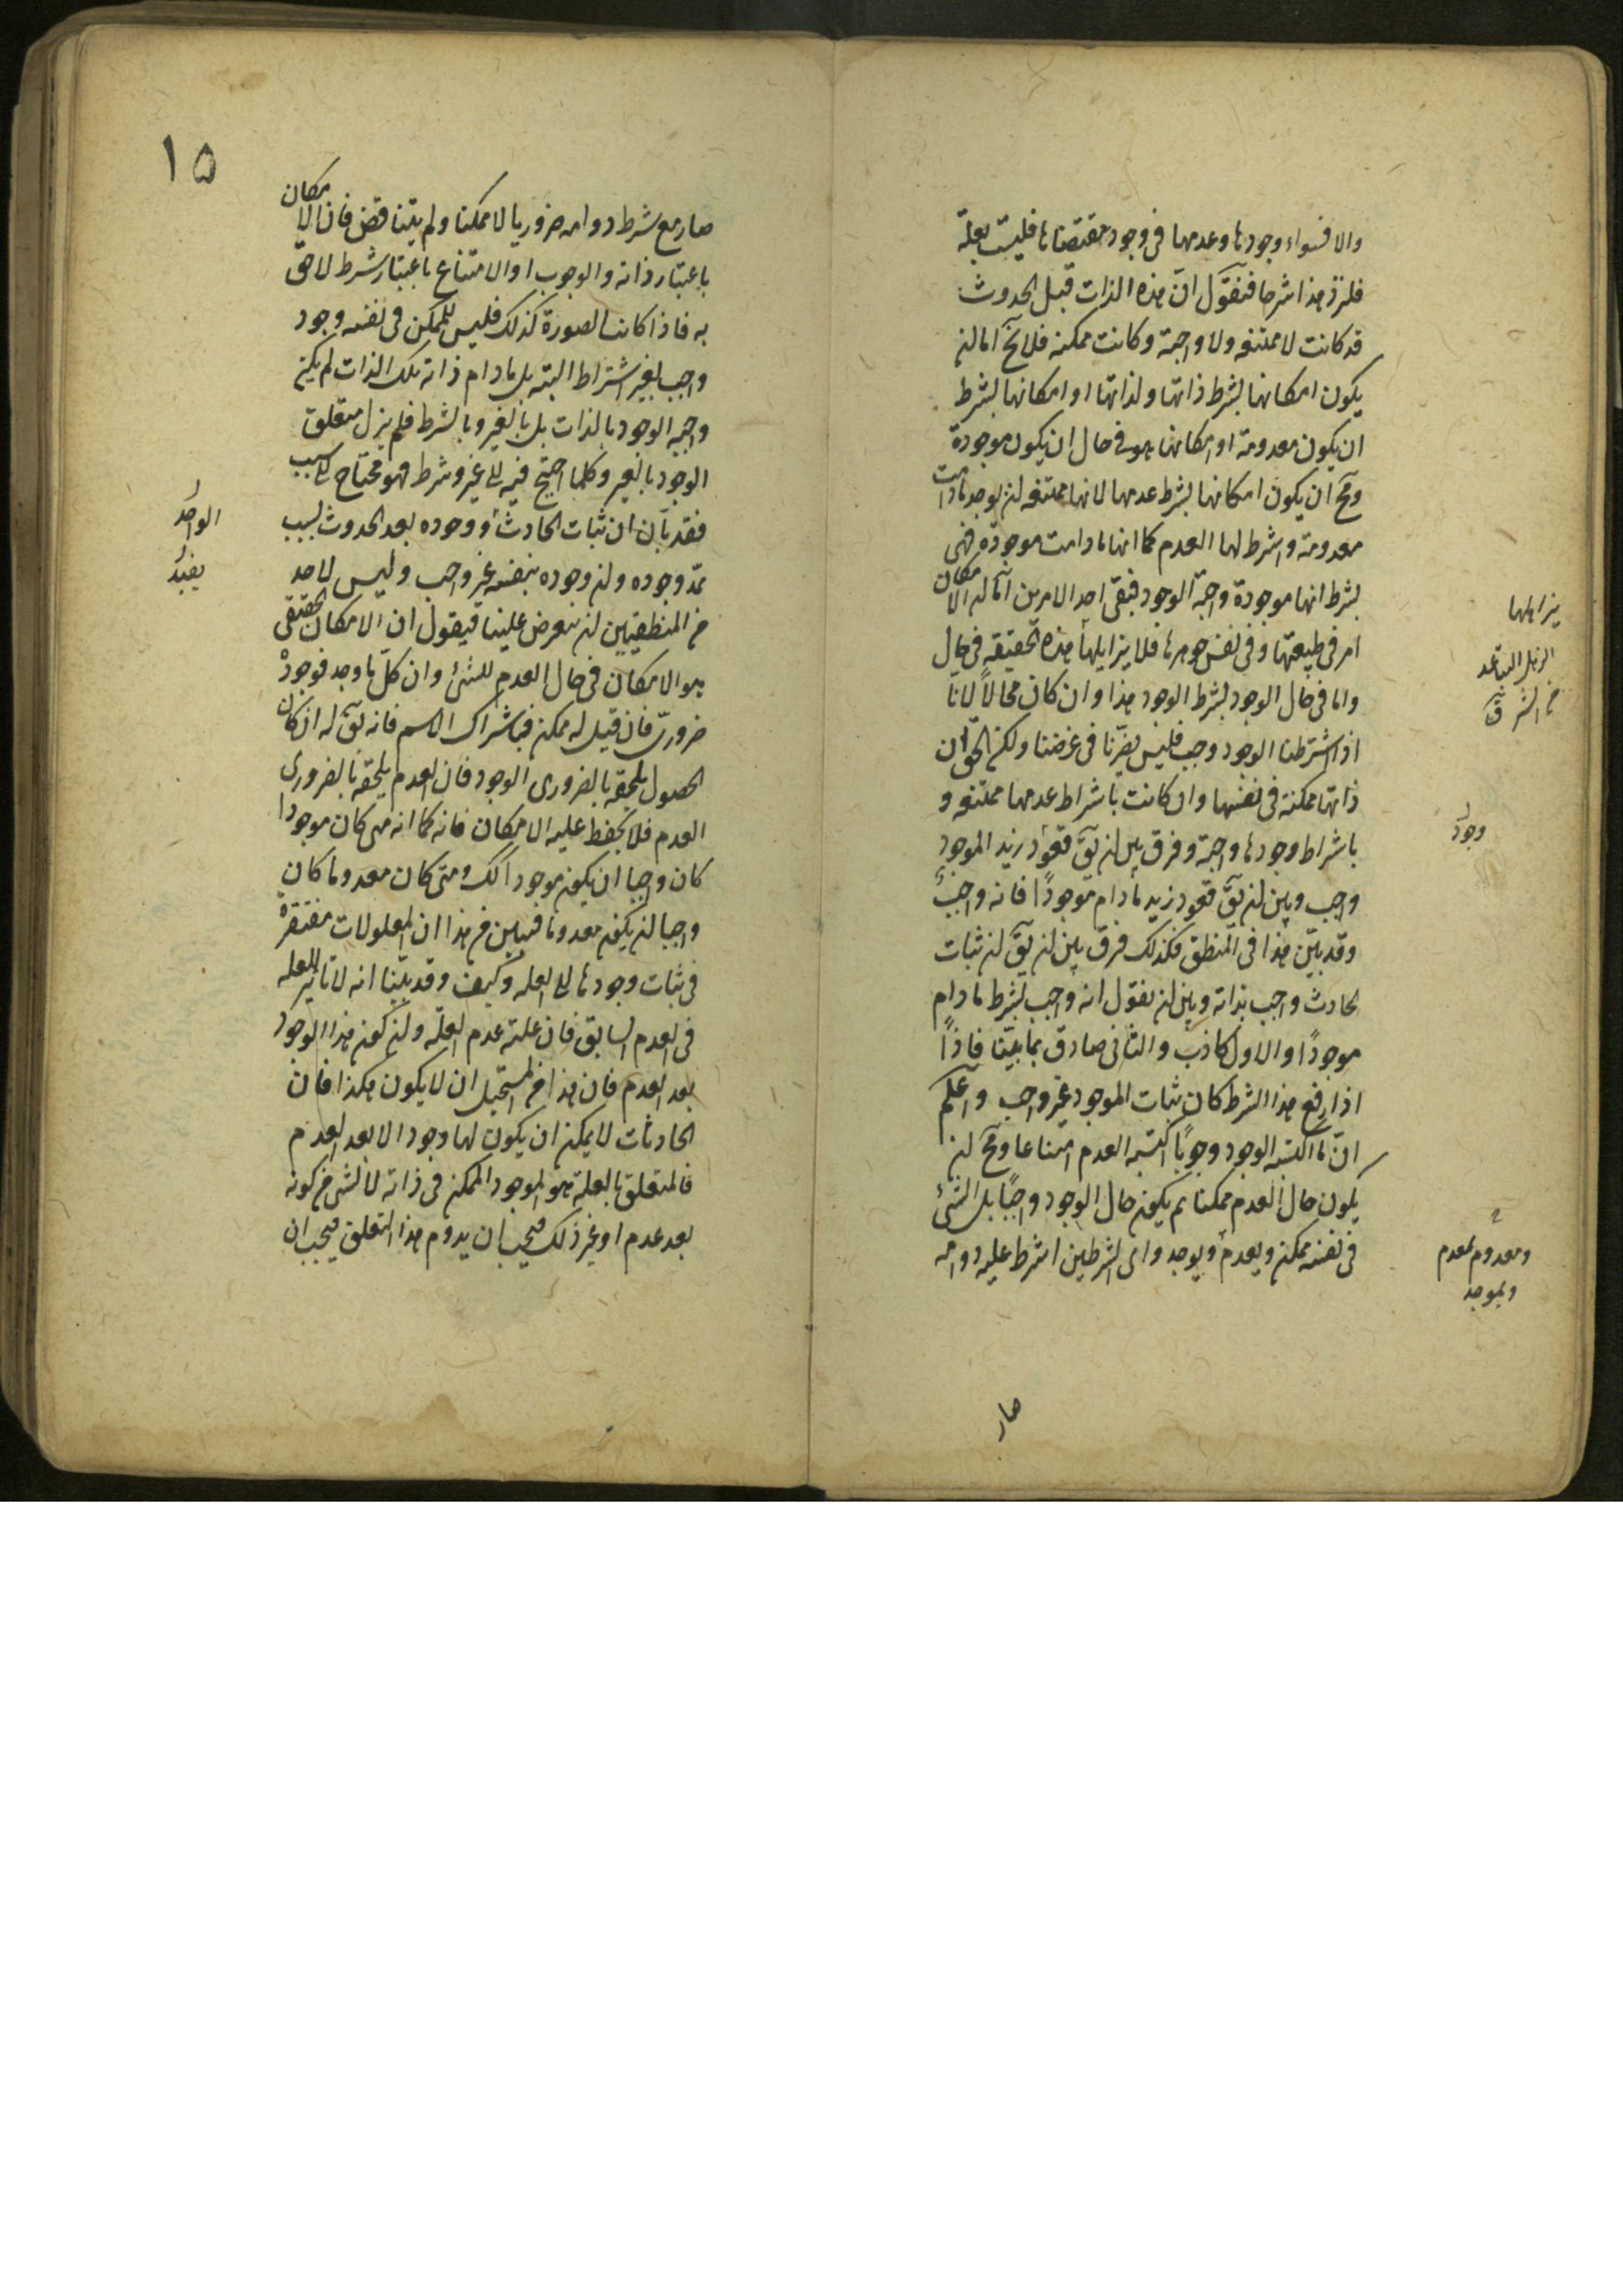 والا فسواء وجودها وعدمها فى وجود مقتضاها فليست بعلة
فلنزد هذا شرحا فنقول ان هذه الذات قبل الحدوث
قد كانت لا ممتنعه ولا واجبة وكانت ممكنه فلا يخ اما لن
يكون امكانها بشرط ذاتها ولذاتها او امكانها بشرط
ان يكون معدومة او امكانها هو فى حال ان يكون موجودة
ومح ان يكون امكانها بشرط عدمها لانها ممتنعه لن يوجد مادامت
معدومة واشرط لها العدم كما انها مادامت موجودة فهى
بشرط انها موجودة واجبة الوجود فبقى احد الامرين اما لن الامكان
امر فى طبيعتها وفى نفس جوهرها فلا يزايلها هذه الحقيقه فى حال
واما فى حال الوجود بشرط الوجود هذا وان كان محالاً لانا
اذا اشترطنا الوجود وجب فليس يضرنا فى غرضنا ولكن الحق ان
ذاتها ممكنة فى نفسها وان كانت باشراط عدمها ممتنعه و
باشراط وجودها واجبة وفرق بين لن يق قعود زيد الموجود
واجب وبين لن يق قعود زيد مادام موجودًا فانه واجب
وقد بيّن هذا فى المنطق فكذلك فرق بين لن يق لن ثبات
الحادث واجب بذاته وبين لن نقول انه واجب بشرط مادام
موجودًا والاول كاذب والثانى صادق بما بيّنا فاذاً
اذا رفع هذا الشرط كان ثبات الموجود غير واجب واعلم
انّ ما اكسبه الوجود وجوبًا اكسبه العدم امتناعا ومح لن
يكون حال العدم ممكنا ثم يكون حال الوجود واجبًا بل الشىء
فى نفسه ممكن ويعدم ويوجد واى الشرطين اشرط عليه دوامه
يزايلها
الزيل التباعد
وجود
ومعدوم بمعدم
وبموجد
صار
١٥
صار مع شرط دوامه ضروريا لا ممكنا ولم يتناقض فان الامكان
باعتبار ذاته والوجوب او الامتناع باعتبار شرط لاحق
به فاذا كانت الصورة كذلك فليس للممكن فى نفسه وجود
واجب بغير اشتراط البته بل مادام ذاته تلك الذات لم يكن
واجبه الوجود بالذات بل بالغير وبالشرط فلم يزل متعلق
الوجود بالغير وكلما احتيج فيه الى غير وشرط فهو محتاج الى سبب
فقد بان ان ثبات الحادث ووجوده بعد الحدوث بسبب
يمدّ وجوده ولن وجوده بنفسه غير واجب وليس لاحد
من المنطقيين لن يعرض علينا فيقول ان الامكان الحقيقى
هو الامكان فى حال العدم للشىء وان كلّ ما وجد فوجوده
ضرورىّ فان قيل له ممكن فباشراك الاسم فانه يق له ان كان
الحصول يلحقه بالضرورى الوجود فان العدم يلحقه بالضرورى
العدم فلا يحفظ عليه الامكان فانه كما انه متى كان موجودا
كان واجبا ان يكون موجودا كك ومتى كان معدوما كان
واجبا لن يكون معدوما فبين من هذا ان المعلولات مفتقرة
فى ثبات وجودها الى العله وكيف وقد بيّنا انه لا تاثير للعله
فى العدم السابق فان علته عدم العلّه ولن كون هذا الوجود
بعد العدم فان هذا من المستحيل ان لا يكون هكذا فان
الحادثات لا يمكن ان يكون لها وجود الا بعد العدم
فالمتعلق بالعلة هو الموجود الممكن فى ذاته لا لشى من كونه
بعد عدم او غير ذلك فيجب ان يدوم هذا التعلق فيجب ان
الواحد
يفيد